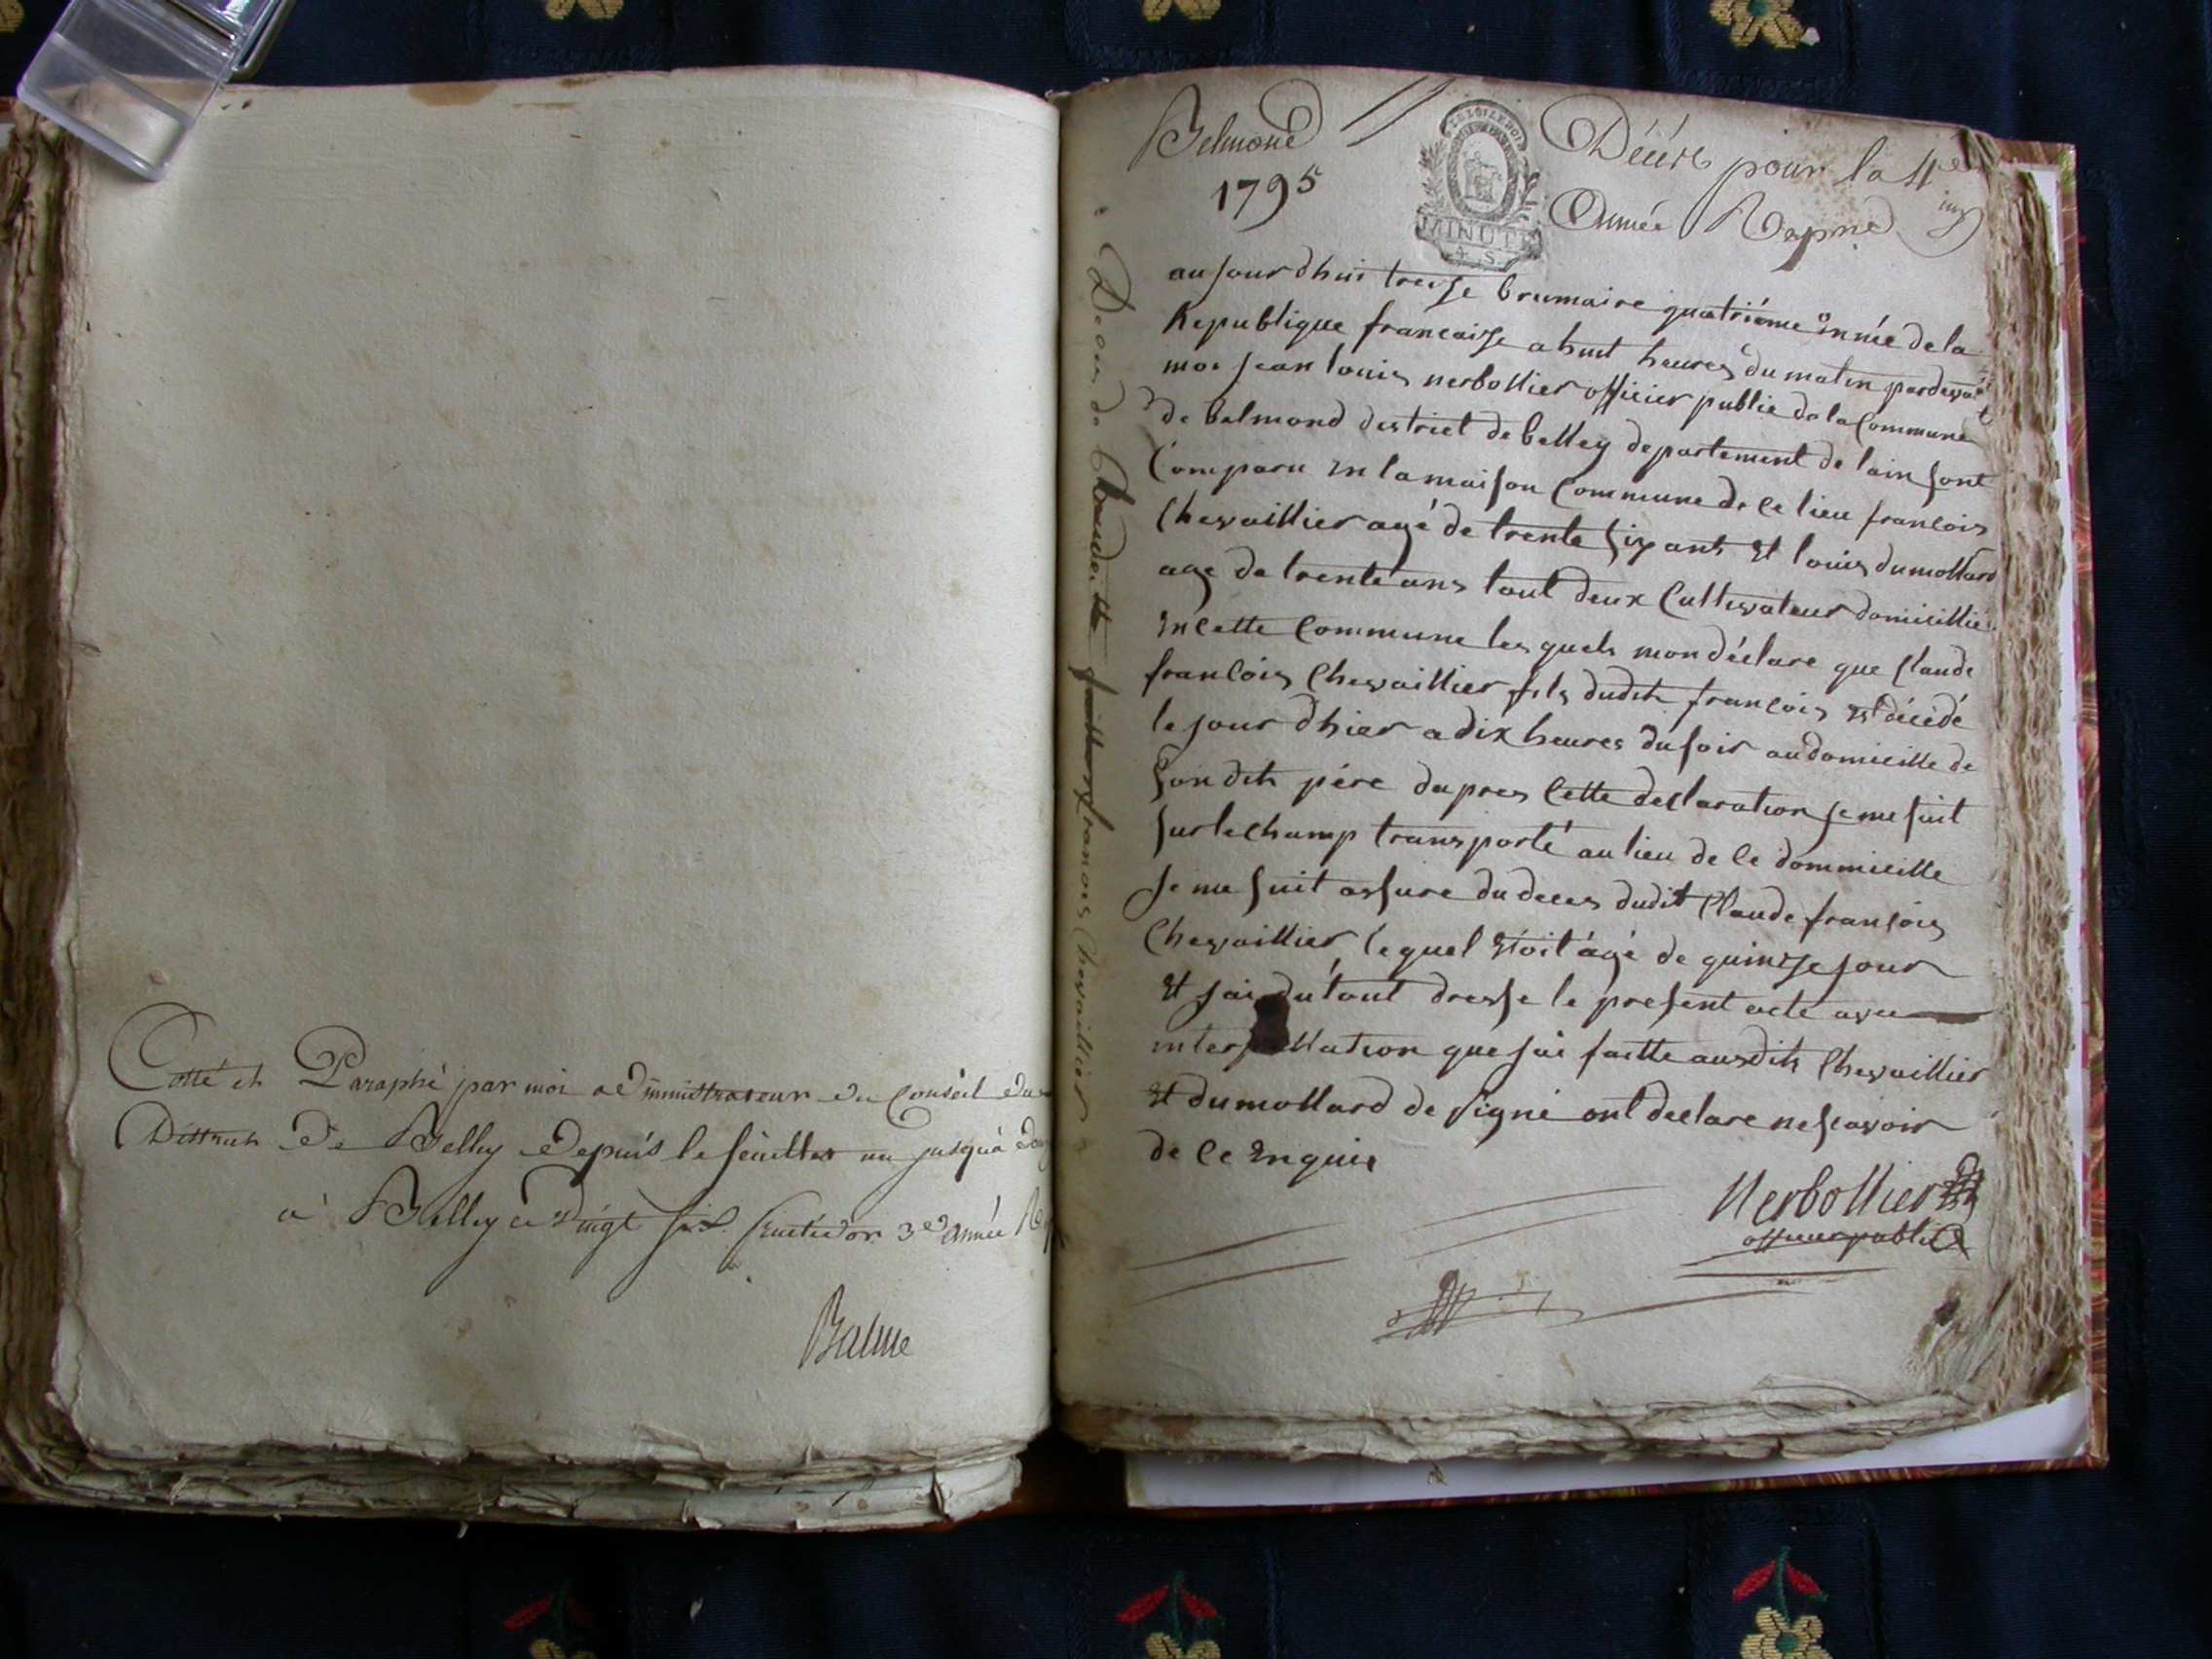 Cotté et Paraphé par moi administrateur du Conseil du
District de Belley depuis le feuillet un jusqu'a
a Belley ce vingt six fructidor 3e année
Balme
Belmond
1795
MINUTE
Décés pour la 4e
Année Repne
Deces de Claude francois Chevaillier
aujourdhui treize brumaire quatriéme année de la
Republique francaisse a huit heures du matin pardevant
moi jean louis nerbollier officier public de la Commune
de belmond destrict de belley departement de lain sont
Comparu en la maison Commune de ce lieu francois
Chevaillier agé de trente six ans et louis dumollard
age de trente ans tout deux Cultivateur domicillié
en cette Commune les quels mon déclare que Claude
francois Chevaillier fils dudit francois est décédé
le jour dhier a dix heures du soir au domicille de
son dit pére dapres Cette declaration je me suit
sur le champ transporté au lieu de ce dommicille
je me suit assure du deces dudit Claude francois
Chevaillier le quel etoit agé de quinze jour
et jai du tout dresse le present acte avec
interpellation que jai faitte ausdits Chevaillier
et dumollard de signé ont declare ne scavoir
de ce enquis
Nerbollier
officier public